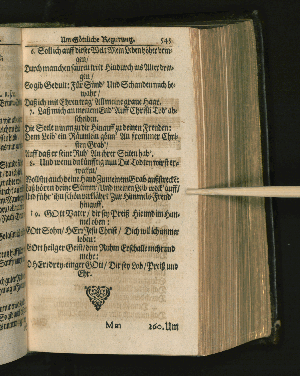 Um Göttliche Regierung. 545
6. Soll ich auff dieser Welt Mein Leben höher brin-
gen/
Durch manchen sauren tritt Hindurch ins Alter drin-
gen/
So gib Gedult: Für Sünd Und Schanden mich be-
wahr/
Daß ich mit Ehren trag All meine graue Haar.
7. Laß mich an meinem End Auff Christi Tod ab-
scheiden.
Die Seele nimm zu dir Hinauff zu deinen Freuden:
Dem Leib ein Räumlein gönn An frommer Chri-
sten Grab/
Auff daß er seine Ruh An ihrer Seiten hab.
8. Und wenn du künfftig nun Die Todten wirst er-
wecken/
So thu auch deine Hand Zu meinem Grab außstrecken:
Laß hören deine Stimm Und meinen Leib weck auff/
Und führ ihn schön verklährt Zur Himmels-Freud
hinauff.
GOtt Vater/ dir sey Preiß Hie und im Him-
mel oben:
GOtt Sohn/ HErr JEsu Christ/ Dich will ich immer
loben:
GOtt heilger Geist/ dein Ruhm Erschalle mehr und
mehr:
O HErr dreyeiniger GOtt/ Dir sey Lob/ Preiß und
Ehr.
Mm 260. Um